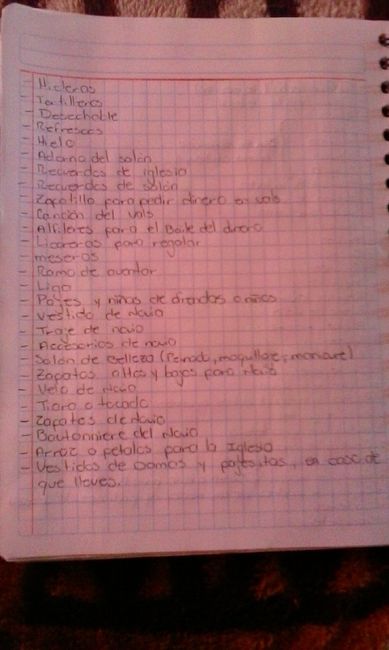 - Hieleras
- Tortilleros
- Desechable
- Refrescos
- Hielo
- Adorno del salón
- Recuerdos de iglesia
- Recuerdos de salón
- Zapatillo para pedir dinero en vals
- Canción del vals
- Alfileres para el Baile del dinero
- Licoreras para regalar
- meseros
- Ramo de aventar
- Liga
- Pajes y niñas de
- Vestido de Novia
- Traje de novio
- Accesorios de novio
- Salón de belleza (Peinado, maquillaje, manicure)
- Zapatos altos y bajos para Novia
- Velo de Novia
- Tiara o tocado
- Zapatos de Novio
- Boutonniere del Novio
- Arroz o petalos para la Iglesia
- Vestidos de Damas y pajesitas, en caso de
que lleves.